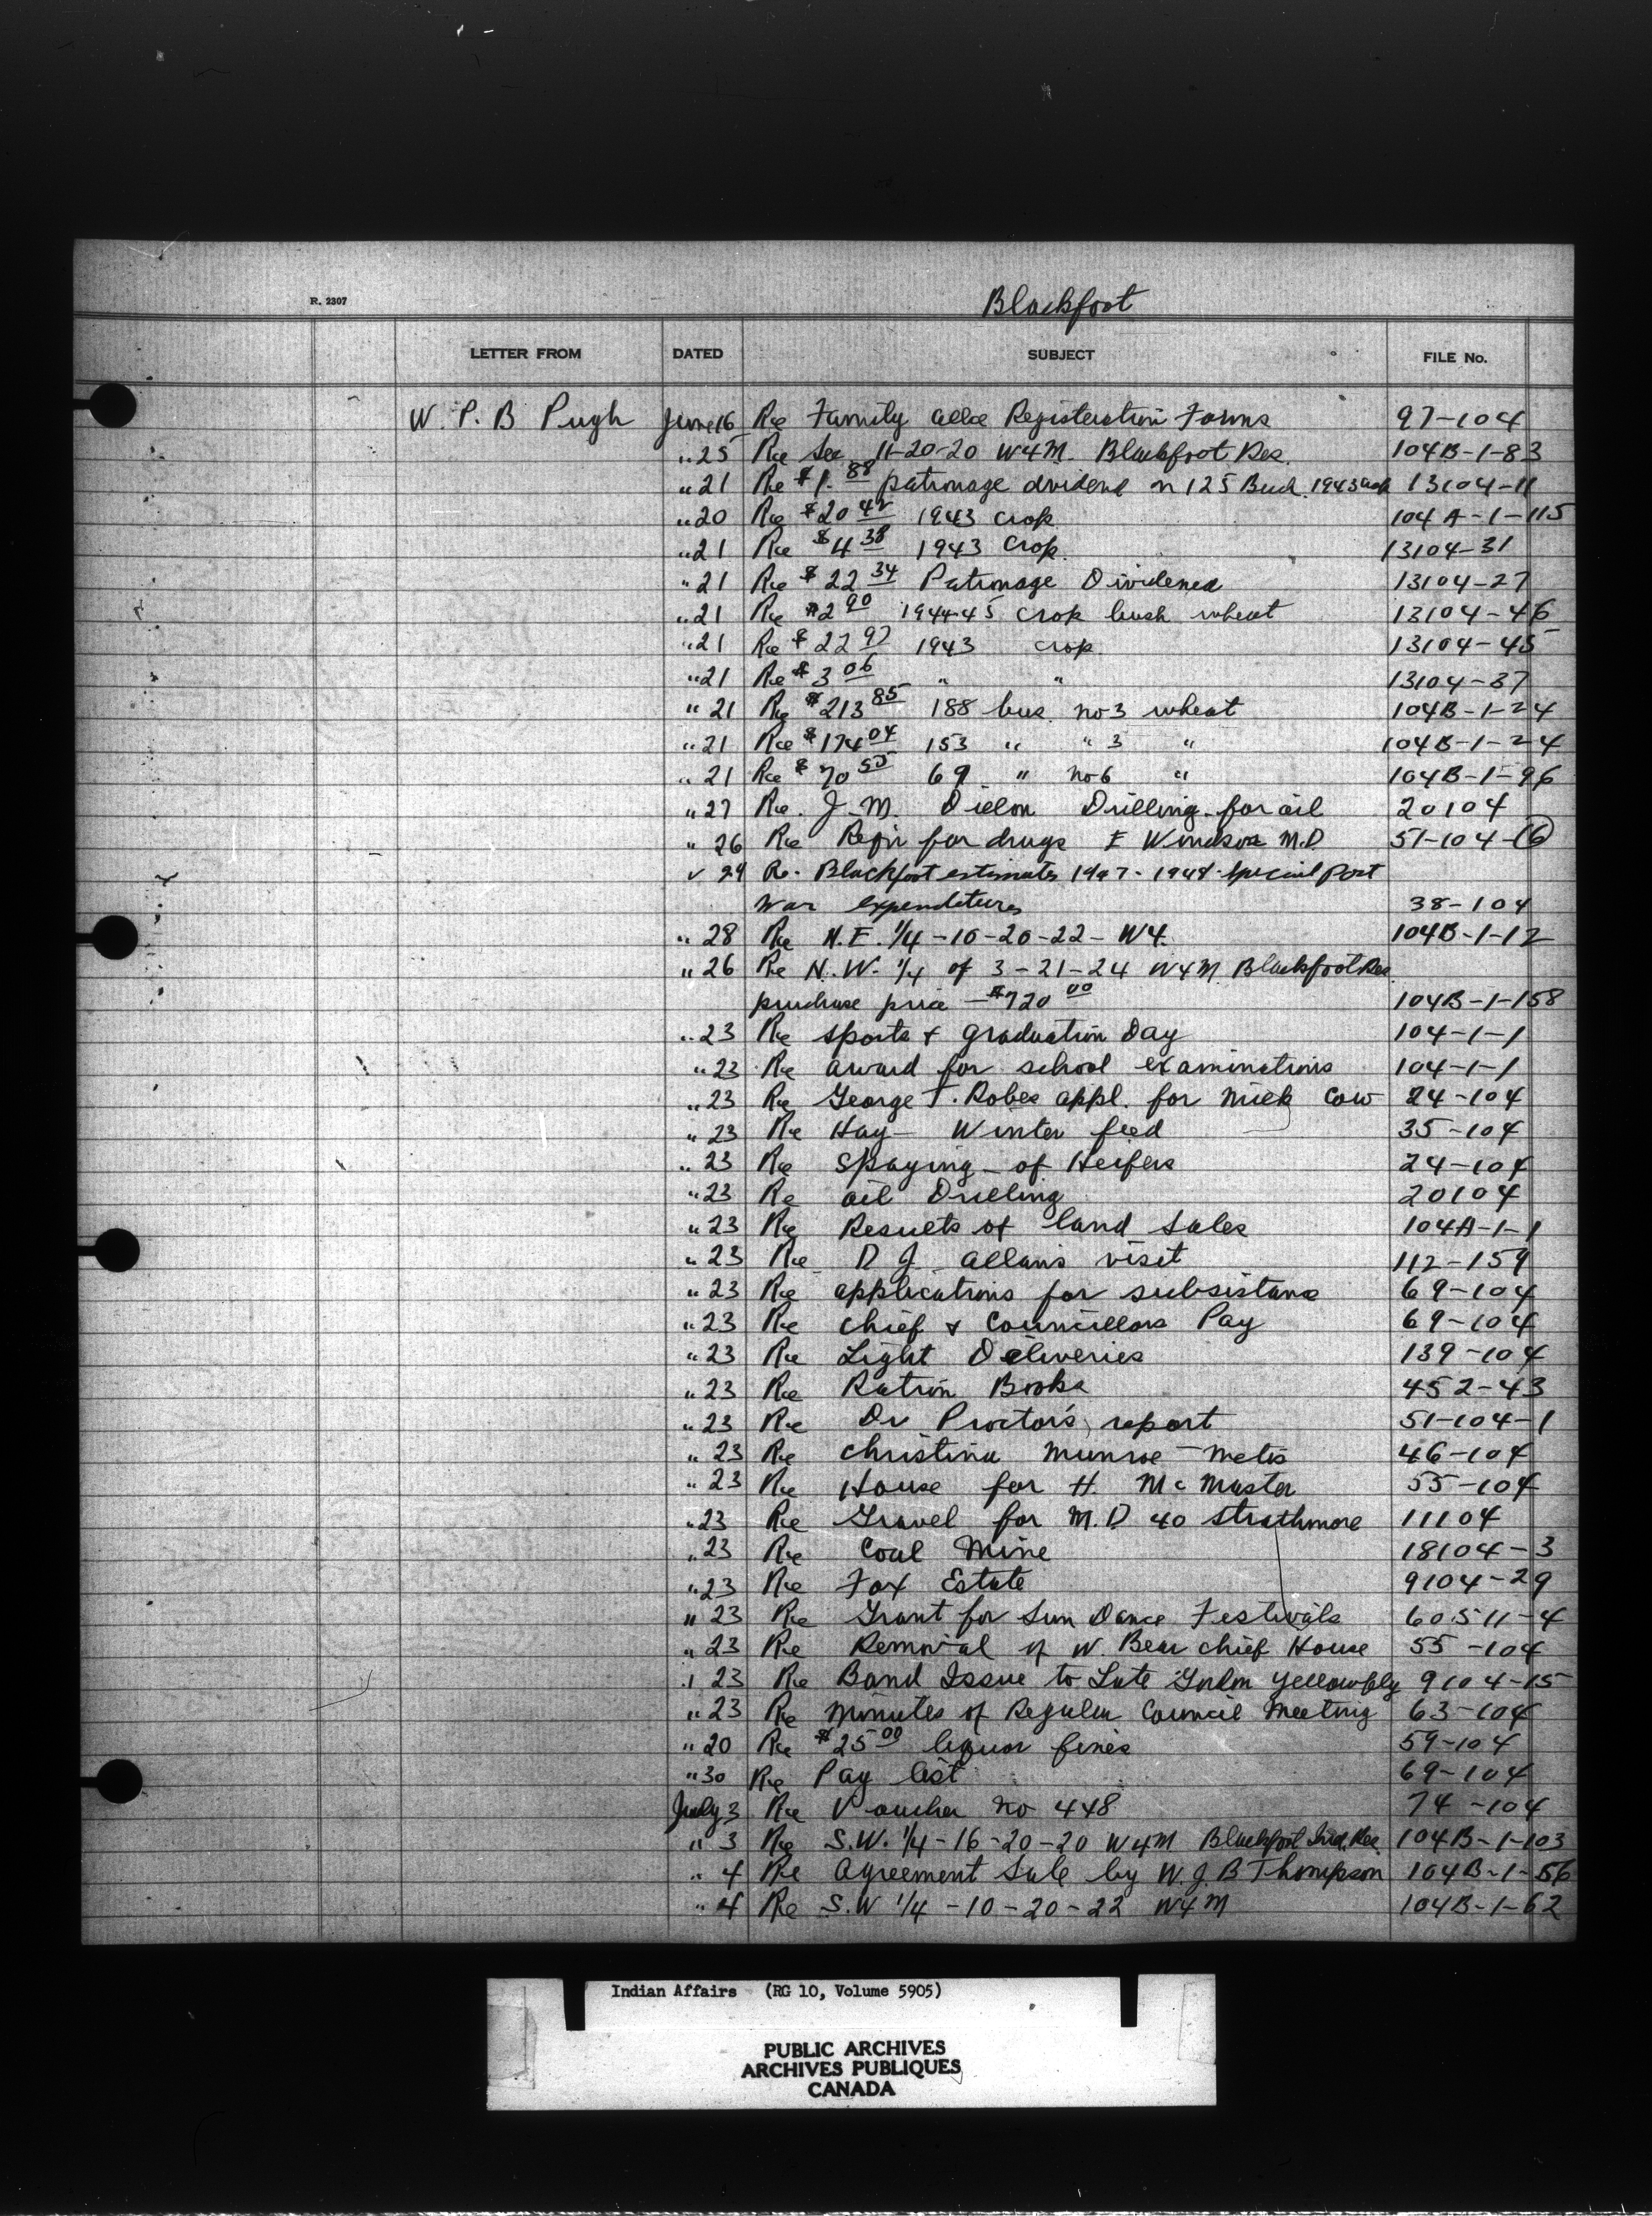 R. 2307
Blackfoot
LETTER FROM DATED SUBJECT FILE No.
W. P. B Pugh June 16 Re Family Allce Registeration Forms 97-104
" 25 Re Sec 11-20-20 W4M. Blackfoot Res. 104B-1-83
" 21 Re $1.88 patronage dividend on 125 Bush. 1943 crop 13104-11
" 20 Re $20 42 1943 crop 104A-1-115
" 21 Re $4 38 1943 crop. 13104-31
" 21 Re $22 34 Patronage Dividened 13104-27
" 21 Re $2 90 1944-45 crop bush wheat 13104-46
" 21 Re $22 97 1943 crop 13104-45
" 21 Re $3 06 " " 13104-37
" 21 Re $213 85 188 bus. no 3 wheat 104B-1-24
" 21 Re $174 04 153 " " 3 " 104B-1-24
" 21 Re $70 55 69 " no 6 " 104B-1-96
" 27 Re. J. M. Dillon Drilling for oil 20104
" 26 Re Reqn for drugs E Windsor M.D. 51-104-(6)
" 29 Re. Blackfoot estimates 1947-1948 special Post
War expenditures 38-104
" 28 Re N.E. 1/4 -10-20-22- W4. 104B-1-12
" 26 Re N.W. 1/4 of 3-21-24 W4M Blackfoot Res
purchase price - $720 00 104B-1-158
" 23 Re sports & graduation Day 104-1-1
" 23 Re award for school examinations 104-1-1
" 23 Re George T. Robes appl. for milk cow 24-104
" 23 Re Hay - Winter feed 35-104
" 23 Re spaying of Heifers 24-104
" 23 Re oil Drilling 20104
" 23 Re Results of land sales 104A-1-1
" 23 Re D J Allan's visit 112-159
" 23 Re applications for subsistance 69-104
" 23 Re chief & Councillors Pay 69-104
" 23 Re Light Deliveries 139-104
" 23 Re Ration Books 452-43
" 23 Re Dr Proctor's report 51-104-1
" 23 Re Christina Munroe - Metis 46-104
" 23 Re House for H. McMaster 55-104
" 23 Re Gravel for M.D. 40 Strathmore 11104
" 23 Re Coal Mine 18104-3
" 23 Re Fox Estate 9104-29
" 23 Re Grant for Sun Dance Festivals 60511-4
" 23 Re Removal of W. Bear Chief House 55-104
" 23 Re Band Issue to Late Yellowfly 9104-15
" 23 Re minutes of Regular Council Meeting 63-104
" 20 Re $25 00 liquor fines 59-104
" 30 Re Pay list 69-104
July 3 Re Voucher no 448 74-104
" 3 Re S.W. 1/4-16-20-20 W4M Blackfoot Ind. Res. 104B-1-103
" 4 Re Agreement Sale by W.J.B Thompson 104B-1-56
" 4 Re S.W 1/4 -10-20-22 W4M 104B-1-62
Indian Affairs (RG 10, Volume 5905)
PUBLIC ARCHIVES
ARCHIVES PUBLIQUES
CANADA